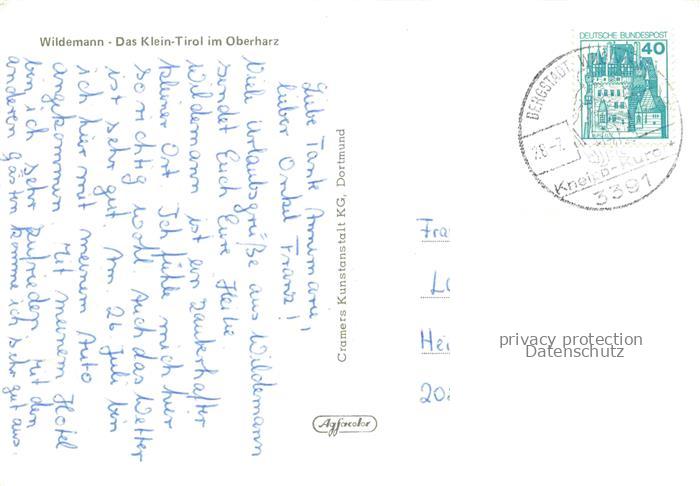 Wildemann - Das Klein-Tirol im Oberharz
Liebe Tante Annimarie,
lieber Onkel Franz!
Viele Urlaubsgrüße aus Wildemann
sendet Euch Eure
Wildemann ist ein zauberhafter
kleiner Ort. Ich fühle mich hier
so richtig wohl. Auch das Wetter
ist sehr gut. Am 26 Juli bin
ich hier mit meinem Auto
angekommen. Mit meinem Hotel
bin ich sehr zufrieden. Mit den
anderen Gästen komme ich sehr gut aus.
Cramers Kunstanstalt KG, Dortmund
Agfacolor
DEUTSCHE BUNDESPOST
40
BERGSTADT
28.-7.
Kneipp-Kuro
3391
Fra
L
Hei
20
privacy protection
Datenschutz